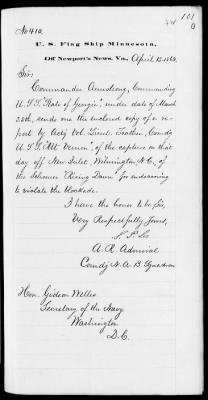 101
44 0
No 410.
U. S. Flag Ship Minnesota,
Off Newport's News, Va., April 12, 1863.
Sir:
Commander Armstrong, Commanding
U.S.S. "State of Georgia", under date of March
28th, sends me the enclosed copy of a re-
port by Act'g Vol. Lieut. Trathen, Comdg
U.S.S. "Mt. Vernon", of the capture on that
day off New Inlet, Wilmington, N.C., of
the Schooner "Rising Dawn" for endeavoring
to violate the blockade.
I have the honor to be, Sir,
Very Respectfully Yours,
S. P. Lee
A. R. Admiral
Comdg N. A. B. Squadron
Hon. Gideon Welles
Secretary of the Navy
Washington
D.C.